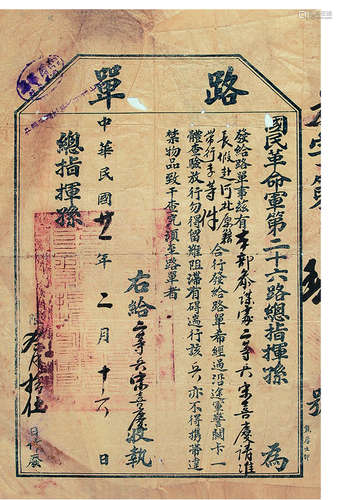 路單
國民革命軍第二十六路總指揮孫 為
發給路單事茲有本部參謀處二等兵宋喜慶請准
長假赴河北原籍
帶行李等件
合行發給路單希經過沿途軍警關卡一
體查驗放行勿得留難阻滯有碍遄行該兵亦不得携帶違
禁物品致干查究須至路單者
右給二等兵宋喜慶收執
中華民國廿一年二月十六日
總指揮孫